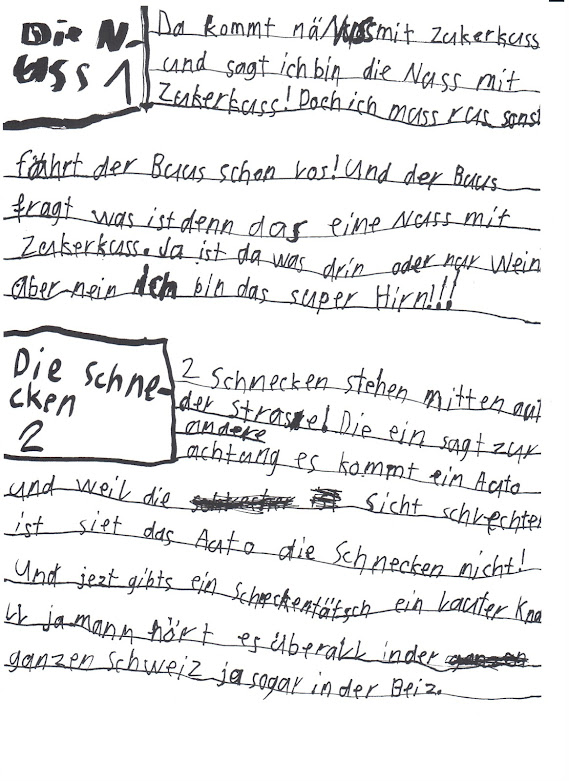 Die N-
uss 1
Da kommt nä Nuss mit Zukerkuss
und sagt ich bin die Nuss mit
Zukerkuss! Doch ich muss rus sonst
fährt der Buus schon los! Und der Buus
fragt was ist denn das eine Nuss mit
Zukerkuss. Ja ist da was drin oder nur Wein
aber nein ich bin das super Hirn!!!
Die Schne-
cken
2
2 Schnecken stehen mitten auf
der Strasse! Die ein sagt zur
andere
achtung es kommt ein Auto
und weil die Sicht schlechter
ist siet das Auto die Schnecken nicht!
Und jezt gibts ein Schneckentätsch ein lauter Kna
ll ja mann hört es überall in der
ganzen Schweiz ja sogar in der Beiz.